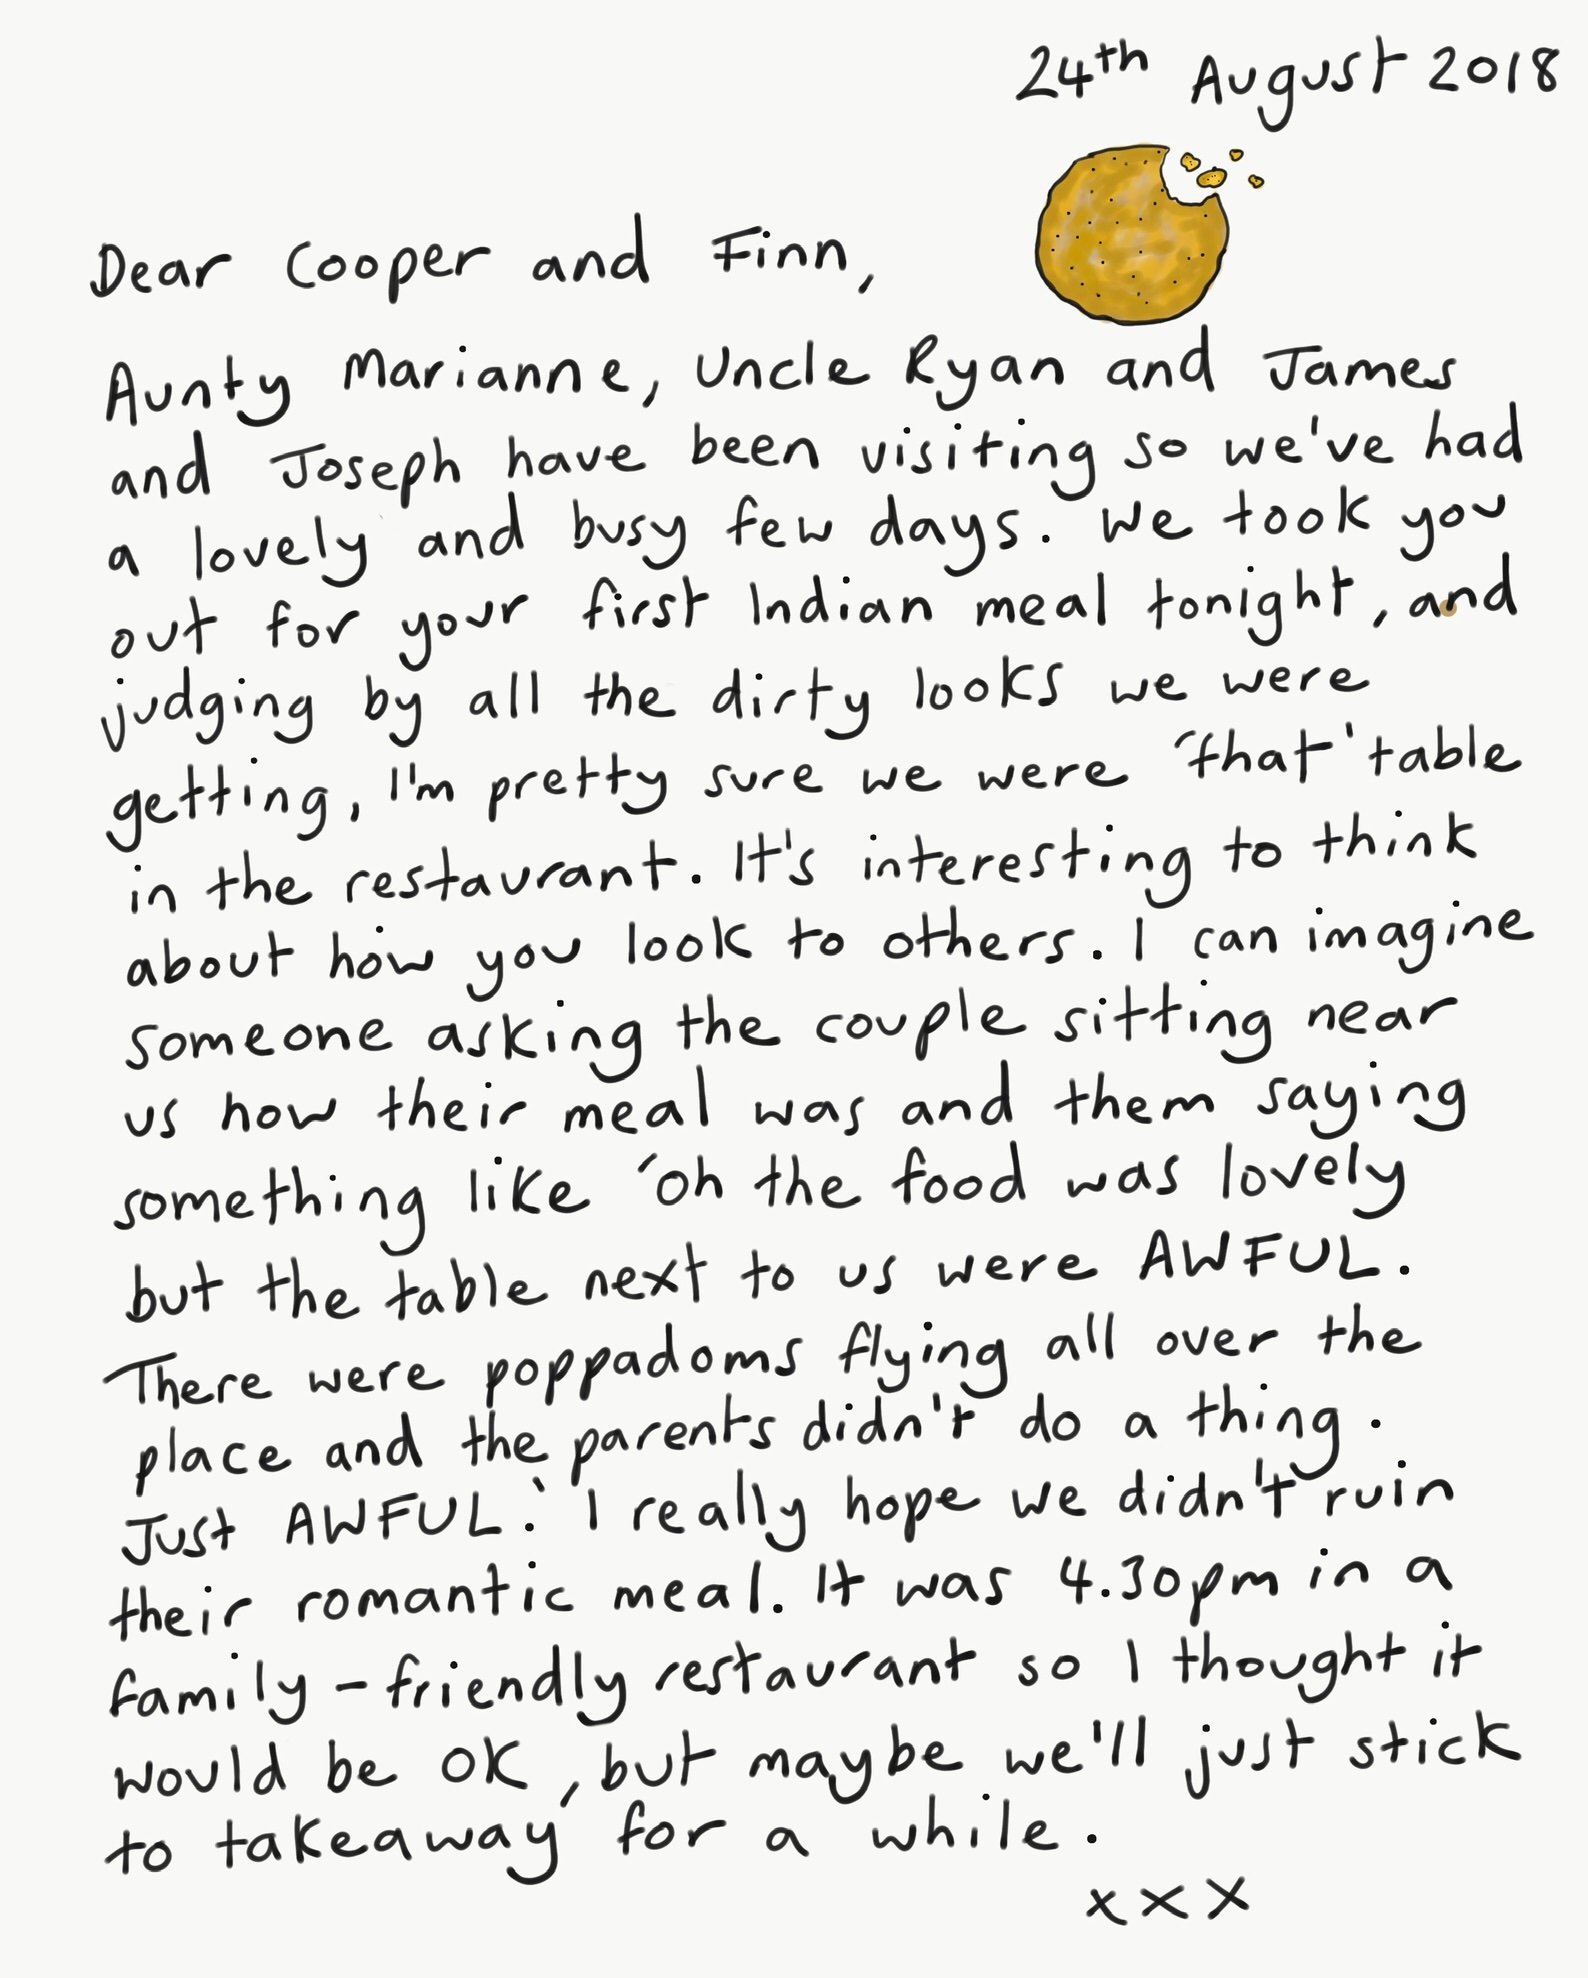 24th August 2018
Dear Cooper and Finn,
Aunty Marianne, Uncle Ryan and James
and Joseph have been visiting so we've had
a lovely and busy few days. We took you
out for your first Indian meal tonight, and
judging by all the dirty looks we were
getting, I'm pretty sure we were 'that' table
in the restaurant. It's interesting to think
about how you look to others. I can imagine
someone asking the couple sitting near
us how their meal was and them saying
something like 'Oh the food was lovely
but the table next to us were AWFUL.
There were poppadoms flying all over the
place and the parents didn't do a thing.
Just AWFUL.' I really hope we didn't ruin
their romantic meal. It was 4.30pm in a
family-friendly restaurant so I thought it
would be OK, but maybe we'll just stick
to takeaway for a while.
xxx